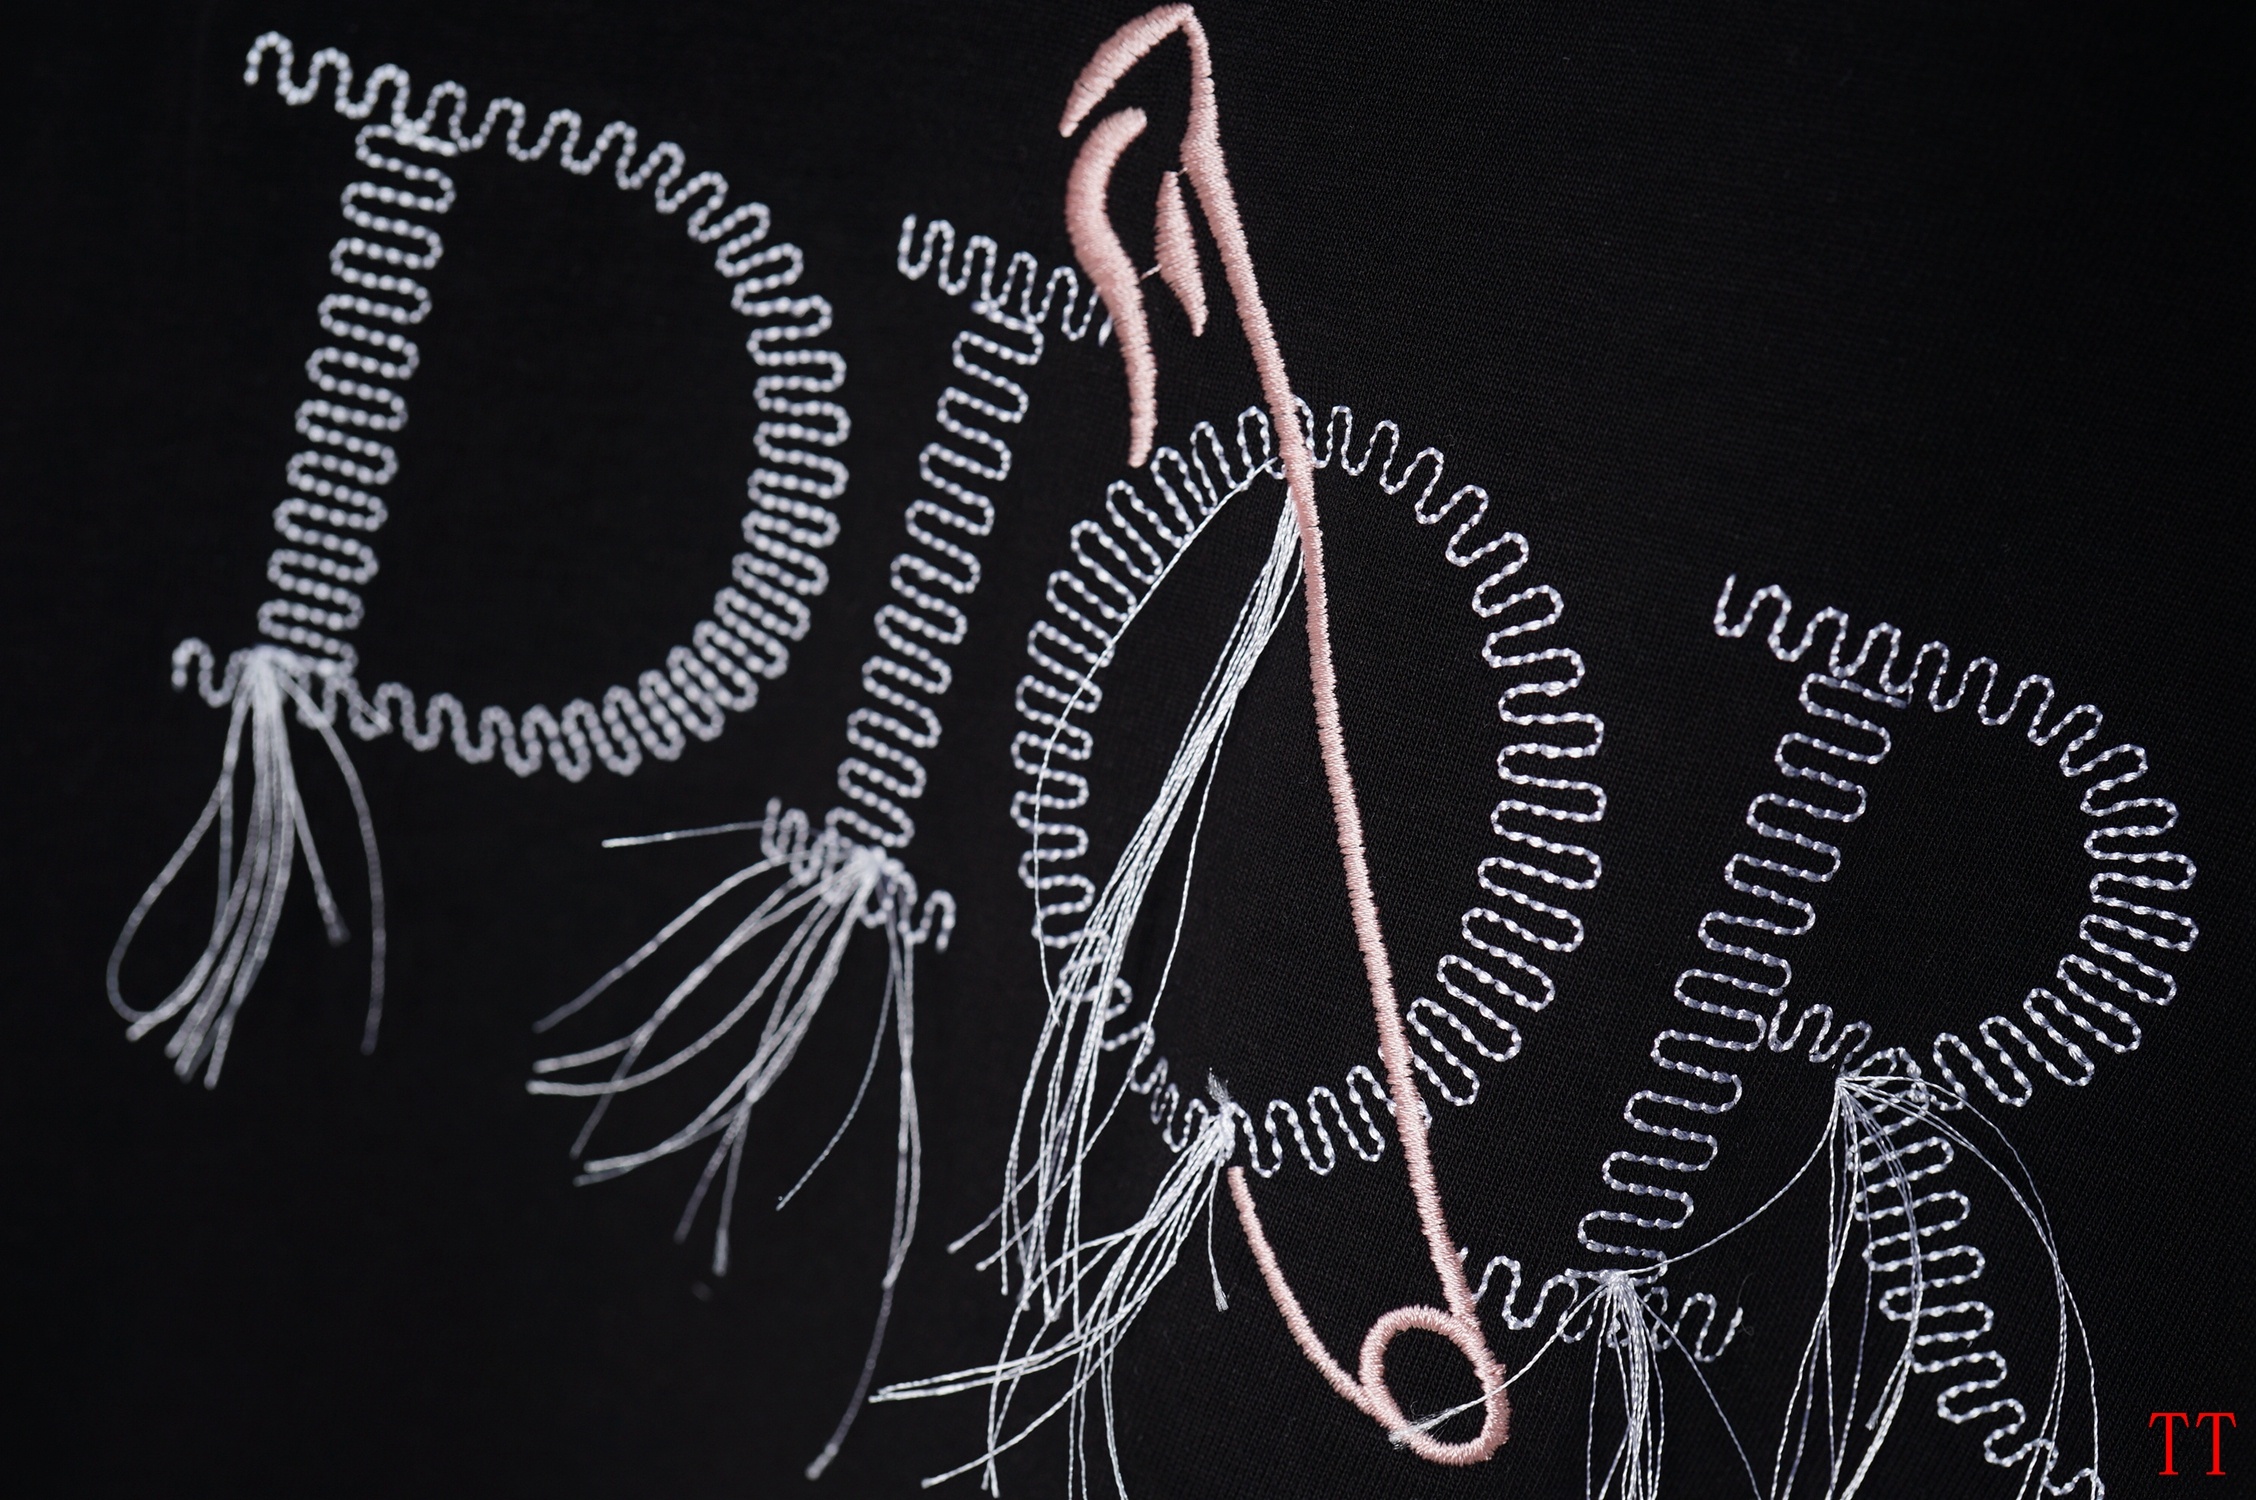 DIOR
TT